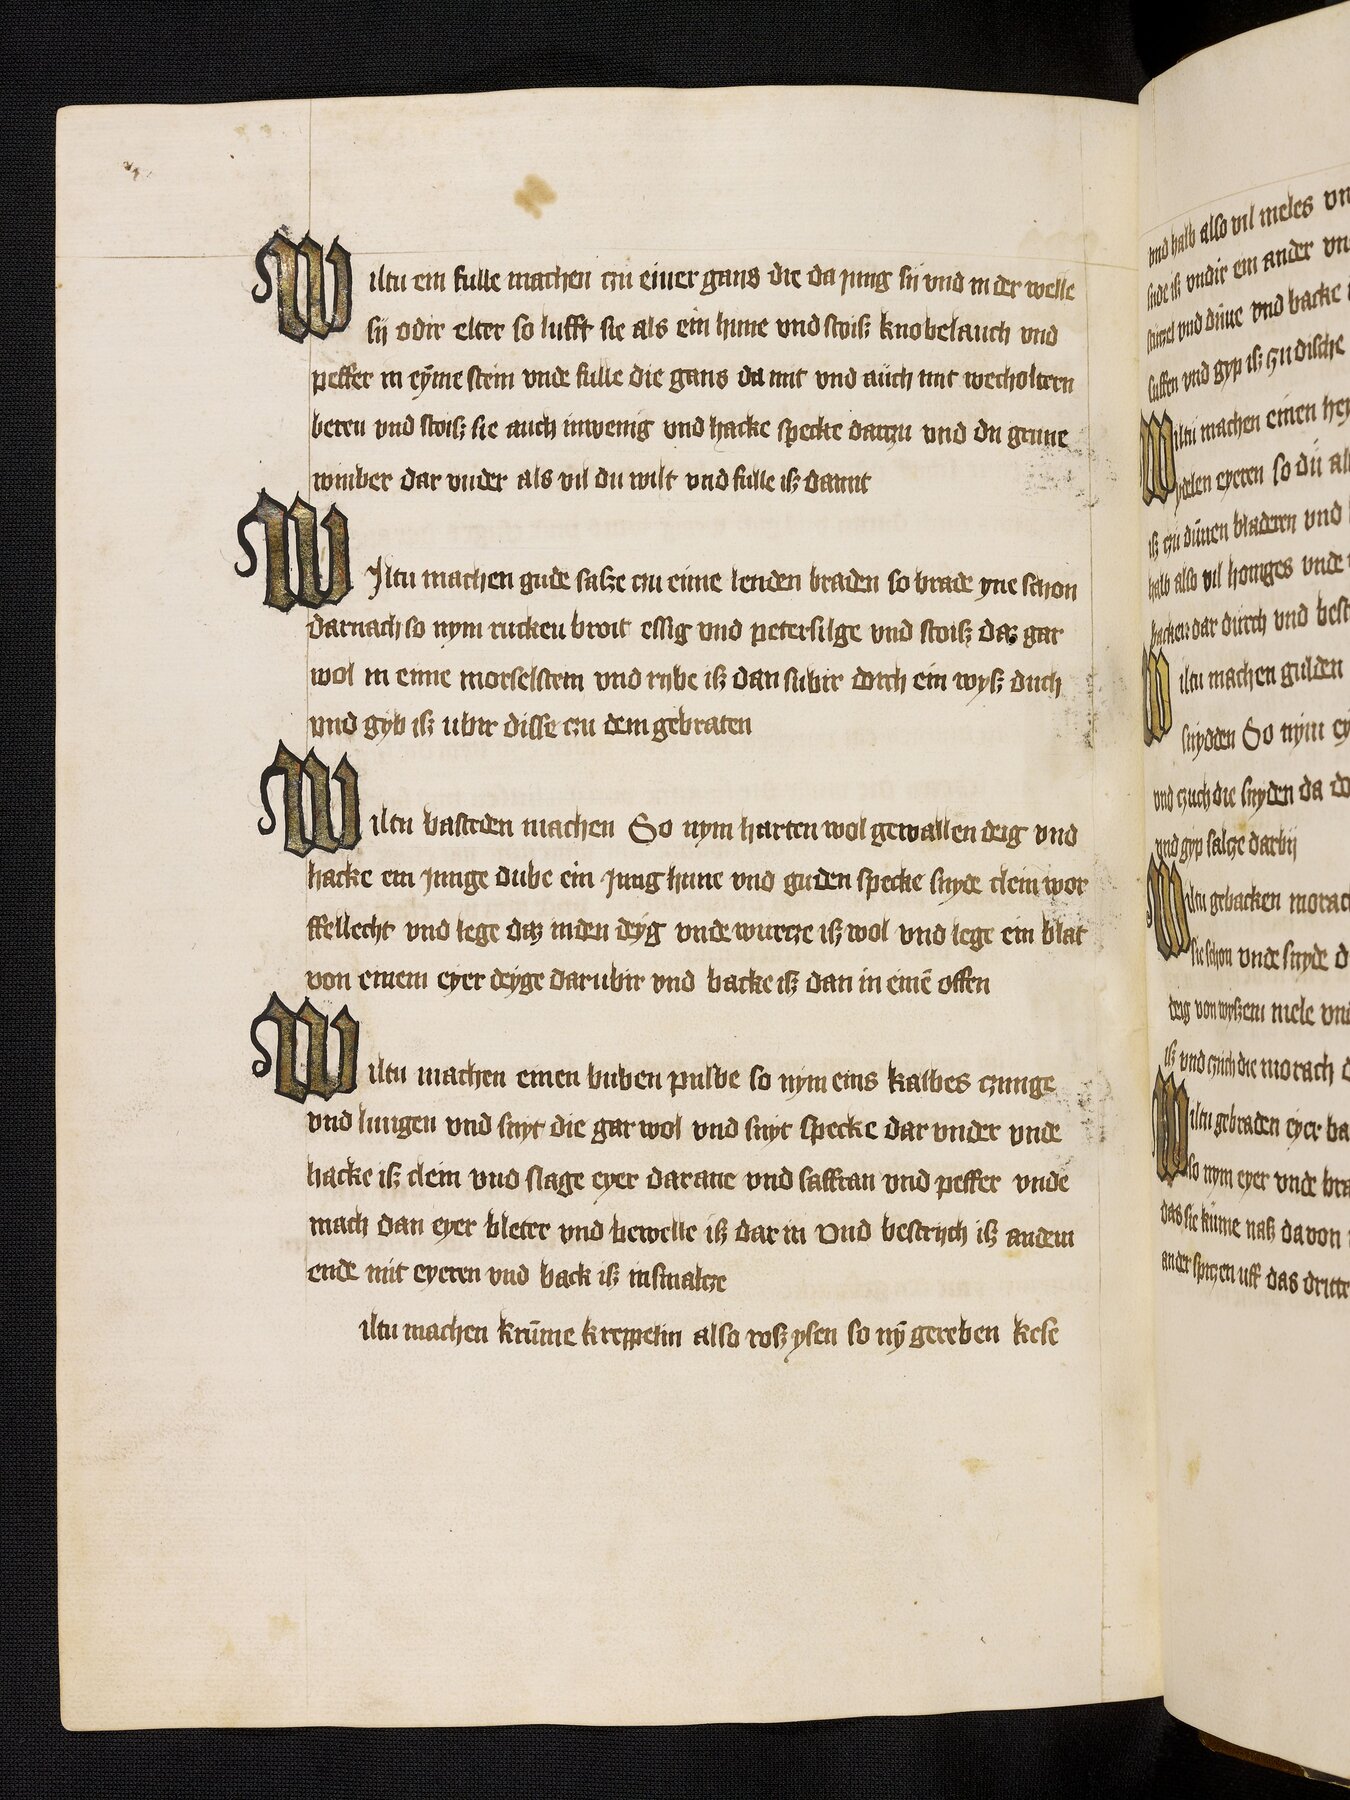 Wiltu ein fulle machen czu einer gans die da jung sij vnd in der welle
sij odir elter so lufft sie als ein hune vnd stois knobelauch vnd
peffer in eyme stein vnde fulle die gans da mit vnd auch mit wecholtern
beren vnd stois sie auch inwenig vnd hacke specke dartzu vnd du grune
winber dar vnder als vil du wilt vnd fulle iß damit
Wiltu machen gude salse czu eime lenden braden so brade yne schon
darnach so nym rucken broit essig vnd petersilge vnd stois daz gar
wol in eime morselstein vnd rijbe iß dan subir dorch ein wyß duch
vnd gyb iß ubir disse czu dem gebraten
Wiltu basteden machen So nym harten wol gewallen deig vnd
hacke ein junge dube ein jung hune vnd guden specke snyde clein wor
ffellecht vnd lege daz in den deyg vnde wurcze iß wol vnd lege ein blat
von einem eyer deyge darubir vnd backe iß dan in eimē offen
Wiltu machen einen buben pulbe so nym eins kalbes czunge
vnd lungen vnd snyt die gar wol vnd snyt specke dar vnder vnde
hacke iß clein vnd slage eyer darane vnd saffran vnd peffer vnde
mach dan eyer bleter vnd bewelle iß dar in Vnd bestrych iß an dem
ende mit eyeren vnd back iß in smalcze
iltu machen krūme kreppelin also roß ysen so nȳ gereben kese
vnd halb also vil meles vn
snde iß vndir ein ander vn
vnd dune vnd backe
vnd gyp iß czu dische
Wiltu machen einen hey
eyeren so du al
iß czu dunen bladeren vnd
halb also vil honiges vnde
backen dar durch vnd best
Wiltu machen gulden
snydden So nym ey
vnd czuch die snyden da do
vnd gyp salcze darbij
Wiltu gebacken morach
sie schon vnde snyde d
deig von wyßem mele vnd
iß vnd czuch die morach d
Wiltu gebraden eyer ba
so nym eyer vnde bra
das sie kume naß da von
ander spitzen uff das dritte